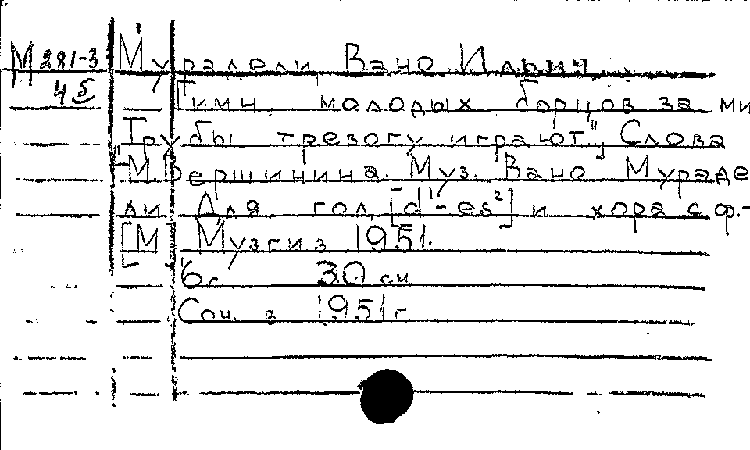 М 281-3
45
Мурадели, Вано Ильич
Гимн молодых борцов за ми
"Трубы тревогу играют", Слова
М. Вершинина. Муз. Вано Мураде
ли. Для гол. [d¹-es²] и хора с ф.-
[М] Музгиз 1951.
6 с. 30 см
Соч. в 1951 г